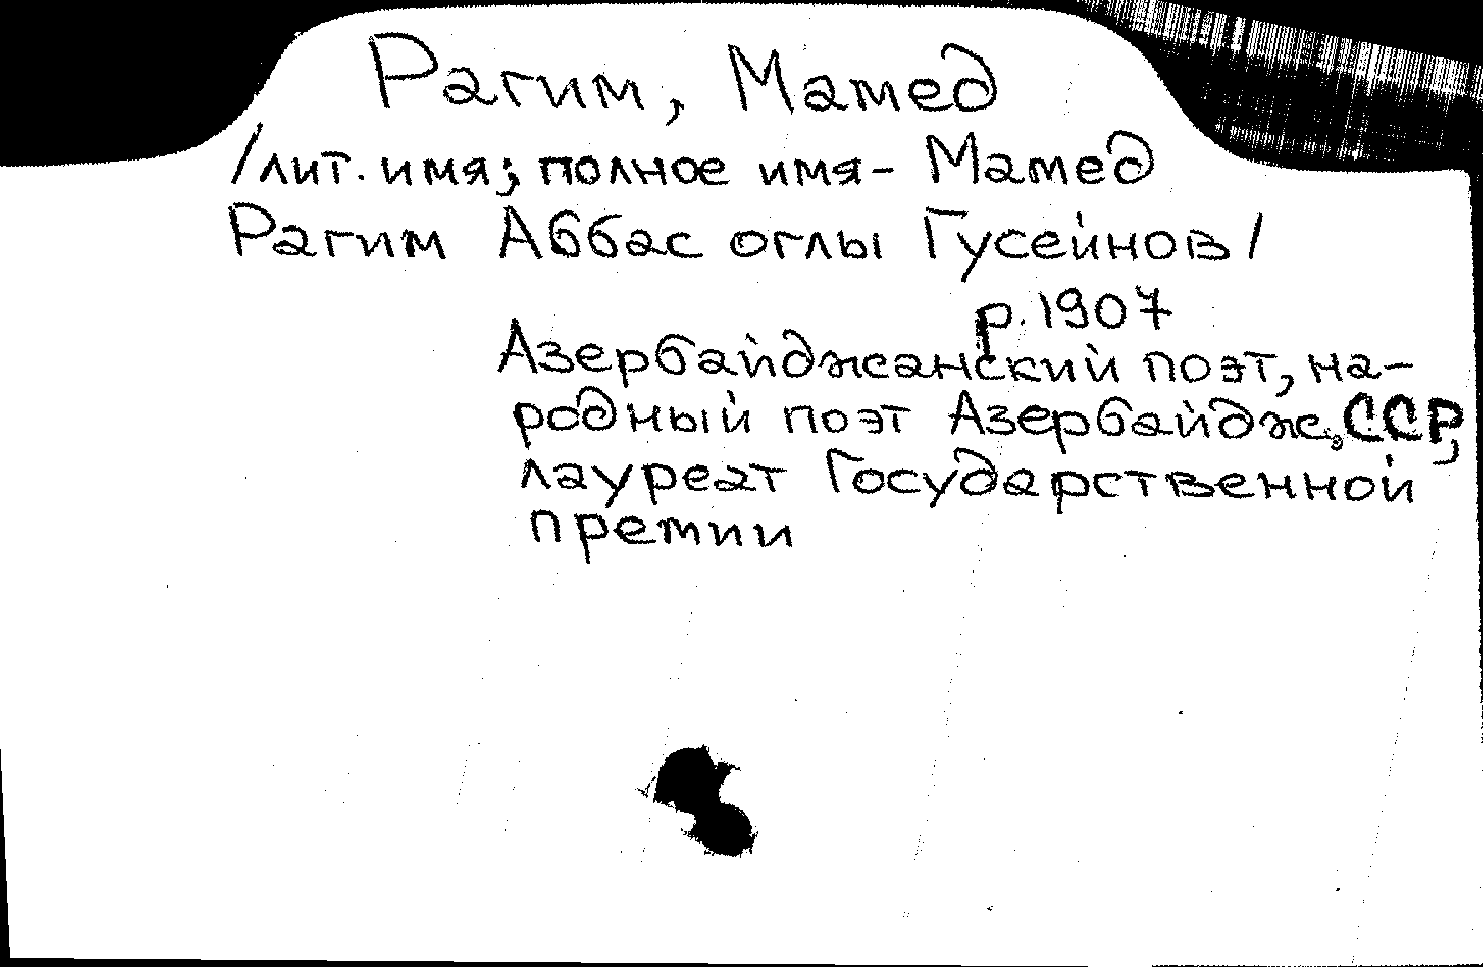 Рагим, Мамед
/лит. имя; полное имя- Мамед
Рагим Аббас оглы Гусейнов/
р.1907
Азербайджанский поэт, на-
родный поэт Азербайдж.ССР,
лауреат Государственной
премии